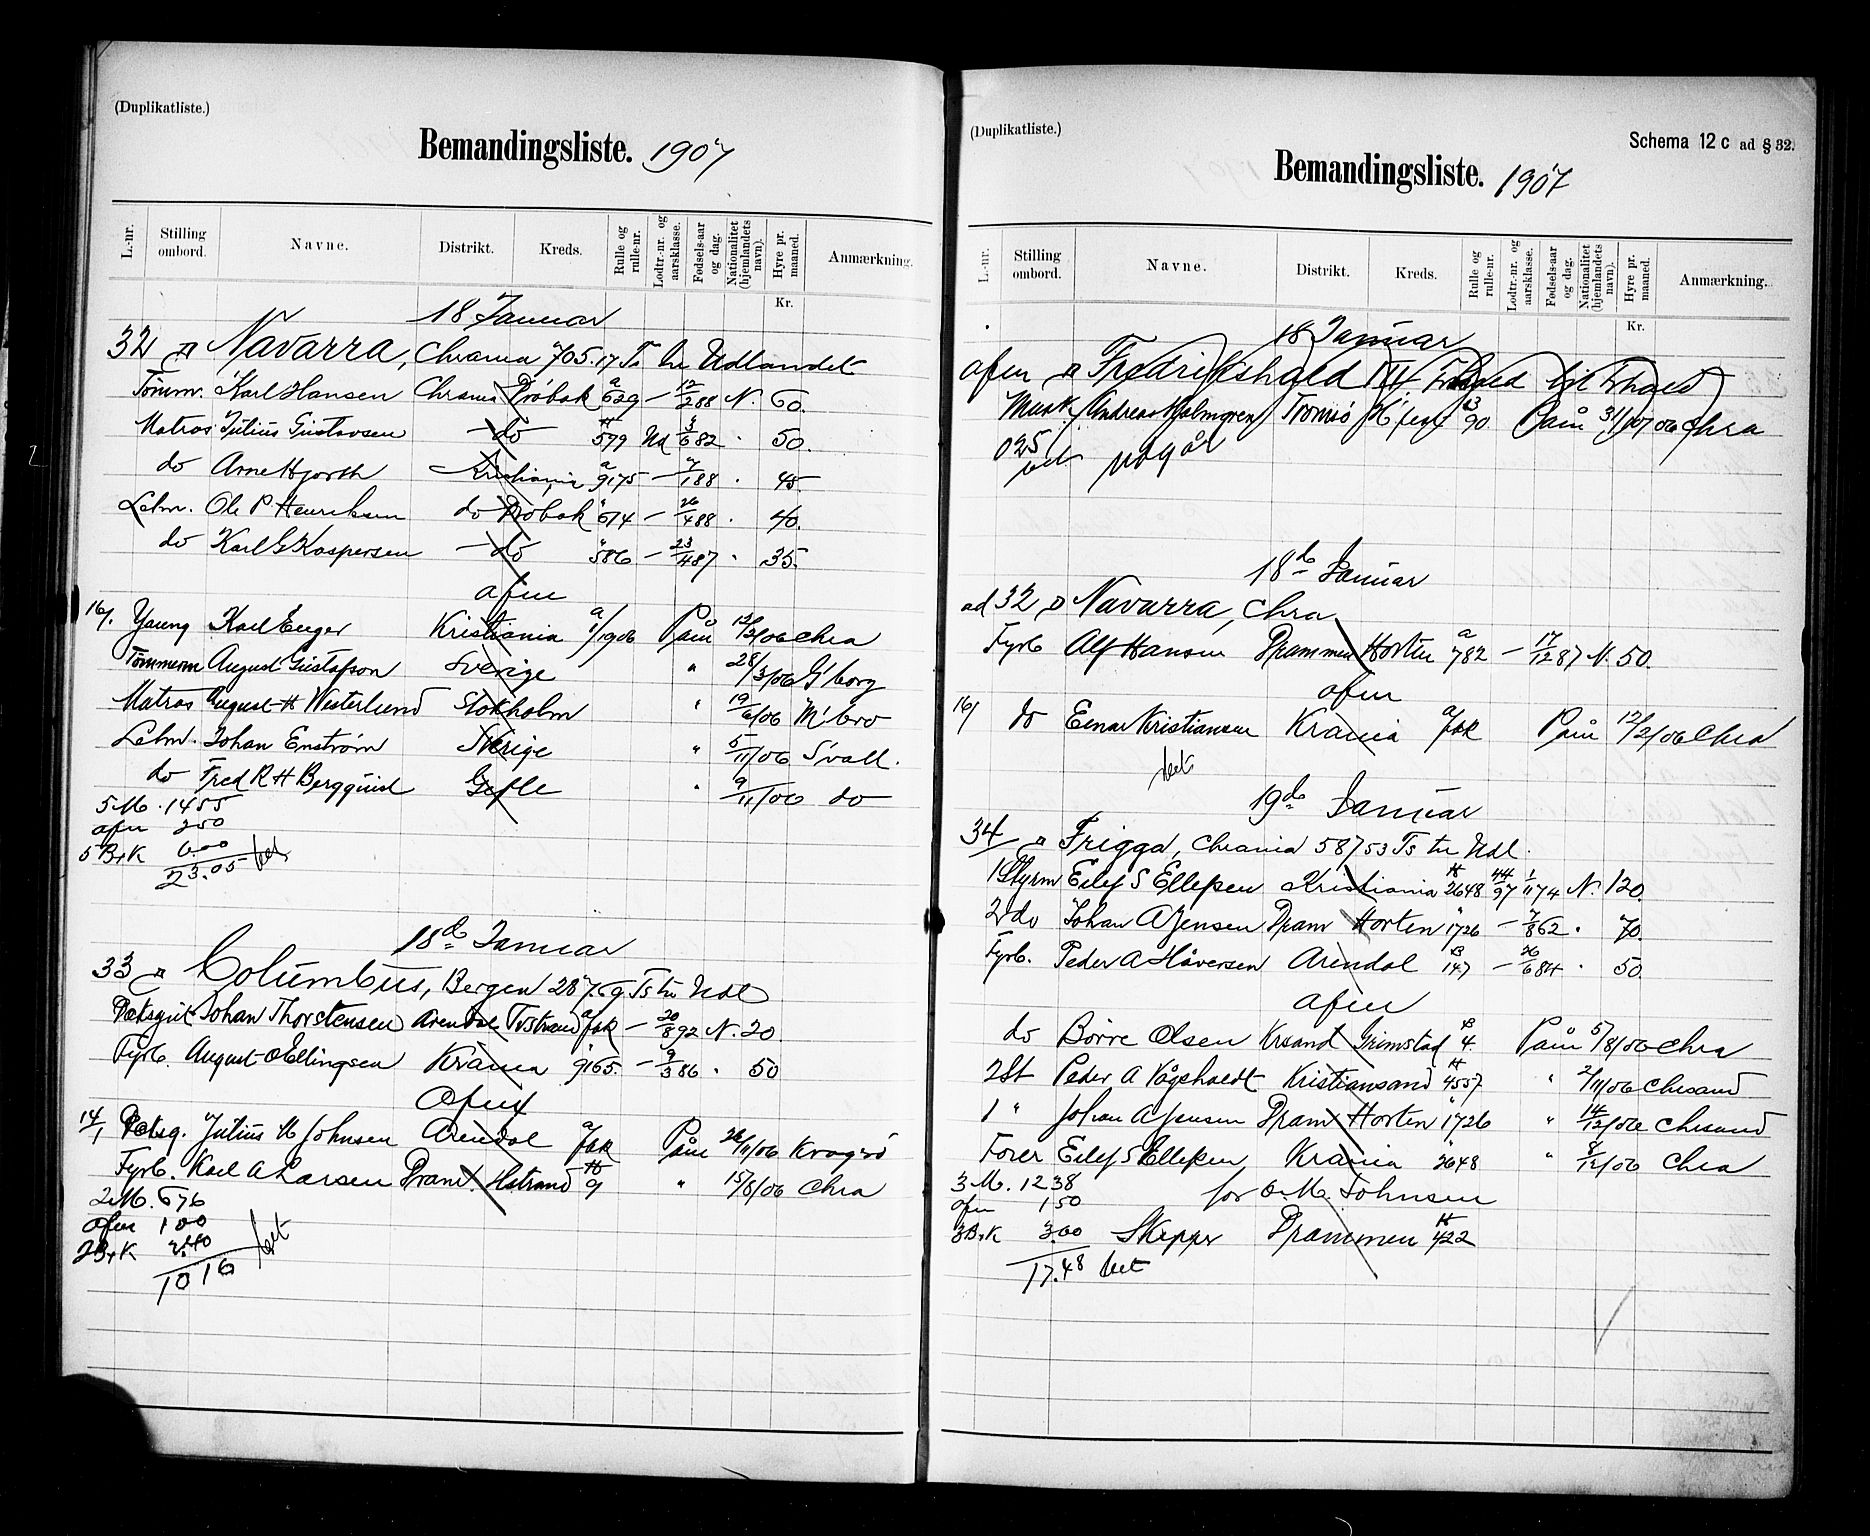 (Duplikatliste.)
Bemandingsliste. 1907
L.-nr. Stilling ombord. Navne. Distrikt. Kreds. Rulle og rulle-nr. Lodtr.-nr. og aarsklasse. Fødsels-aar og dag. Nationalitet (hjemlandets navn). Hyre pr. maaned. Anmærkning.
Kr.
18 Januar
32 Navarra, Chrania 705.17 Ts til Udlandet
Tømm. Karl Hansen Chrania Drøbak a 629 — 12/288 N. 60.
Matros Julius Gustavsen — do 599 3/682 50.
do Arne Hjorth Kristiania a 9175 — 7/188 45
Letm. Ole P Henriksen do Drøbak " 614 — 26/488 40.
do Karl G Kaspersen — do " 586 — 23/487 35.
afm
16/1. Young Karl Enger Kristiania a/1906 Paam 12/2/06 Chra
Tømmerm August Gustafson Sverige " 28/3/06 G'borg
Matros August H Westerlund Stokholm " 19/6/06 M'bro
Letm. Johan Enström Sverige " 5/11/06 S'vall.
do Fred R H Bergquist Gefle " 9/11/06 do
5 M. 1455
afm 250
5 B+K 6.00
23.05 bet
18de Januar
33 Columbus, Bergen 287.69 Ts til Udl
Dæksgut Johan Thorstensen Arendal Tvstrand a/fsk — 20/892 N. 20.
Fyrb. August O Ellingsen Krania " 9165. — 9/386 50
Afm
14/1 Dæksg. Julius M Johnsen Arendal a/fsk Paam 26/11/06 Kragerö
Fyrb. Karl A Larsen Dram. Hstrand H 9 " 15/8/06 Chra
2 M. 676
afm 100
2 B+K 2.40
10 16 bet
(Duplikatliste.)
Schema 12 c ad § 32.
Bemandingsliste. 1907
L.-nr. Stilling ombord. Navne. Distrikt. Kreds. Rulle og rulle-nr. Lodtr.-nr. og aarsklasse. Fødsels-aar og dag. Nationalitet (hjemlandets navn). Hyre pr. maaned. Anmærkning.
Kr.
18 Januar
afm Fredrikshald III Frhald til Frhald
Mask. Andreas Halmgren Tromsö H'fest B 90 Paam 31/10/06 Chra
025 bet udgår
18de Januar
ad 32 Navarra, Chra
Fyrb Alf Hansen Drammen Horten a 782 — 17/1287 N. 50.
afm
16/1 do Einar Kristiansen Krania a/fsk Paam 12/2/06 Chra
bet
19de Januar
34 Frigga, Chrania 587.53 Ts til Udl.
1 Styrm Eilef S Ellefsen Kristiania H 2648 44/97 1/1174 N. 120.
2 do Johan A Jensen Dram Horten " 1726 — 7/862 70.
Fyrb. Peder A Håversen Arendal B 147 — 26/684 50
afm
do Börre Olsen Krsand Grimstad B 4. Paam 5/8/06 Chra
2 St Peder A Vågsholdt Kristiansand H 4557 " 2/11/06 Chrsand
1 " Johan A Jensen Dram Horten " 1726 " 14/12/06 Chrsand
Fører Eilef S Ellefsen Krania " 2648 " 8/12/06 Chra
3 M. 1238 for O. M. Johnsen
afm 150
3 B+K 3.60 Skipper Drammen H 422
17.48 bet